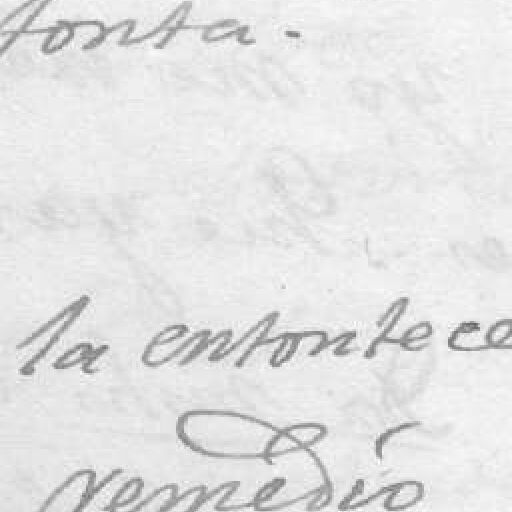 tonta.
la entontece
remedio